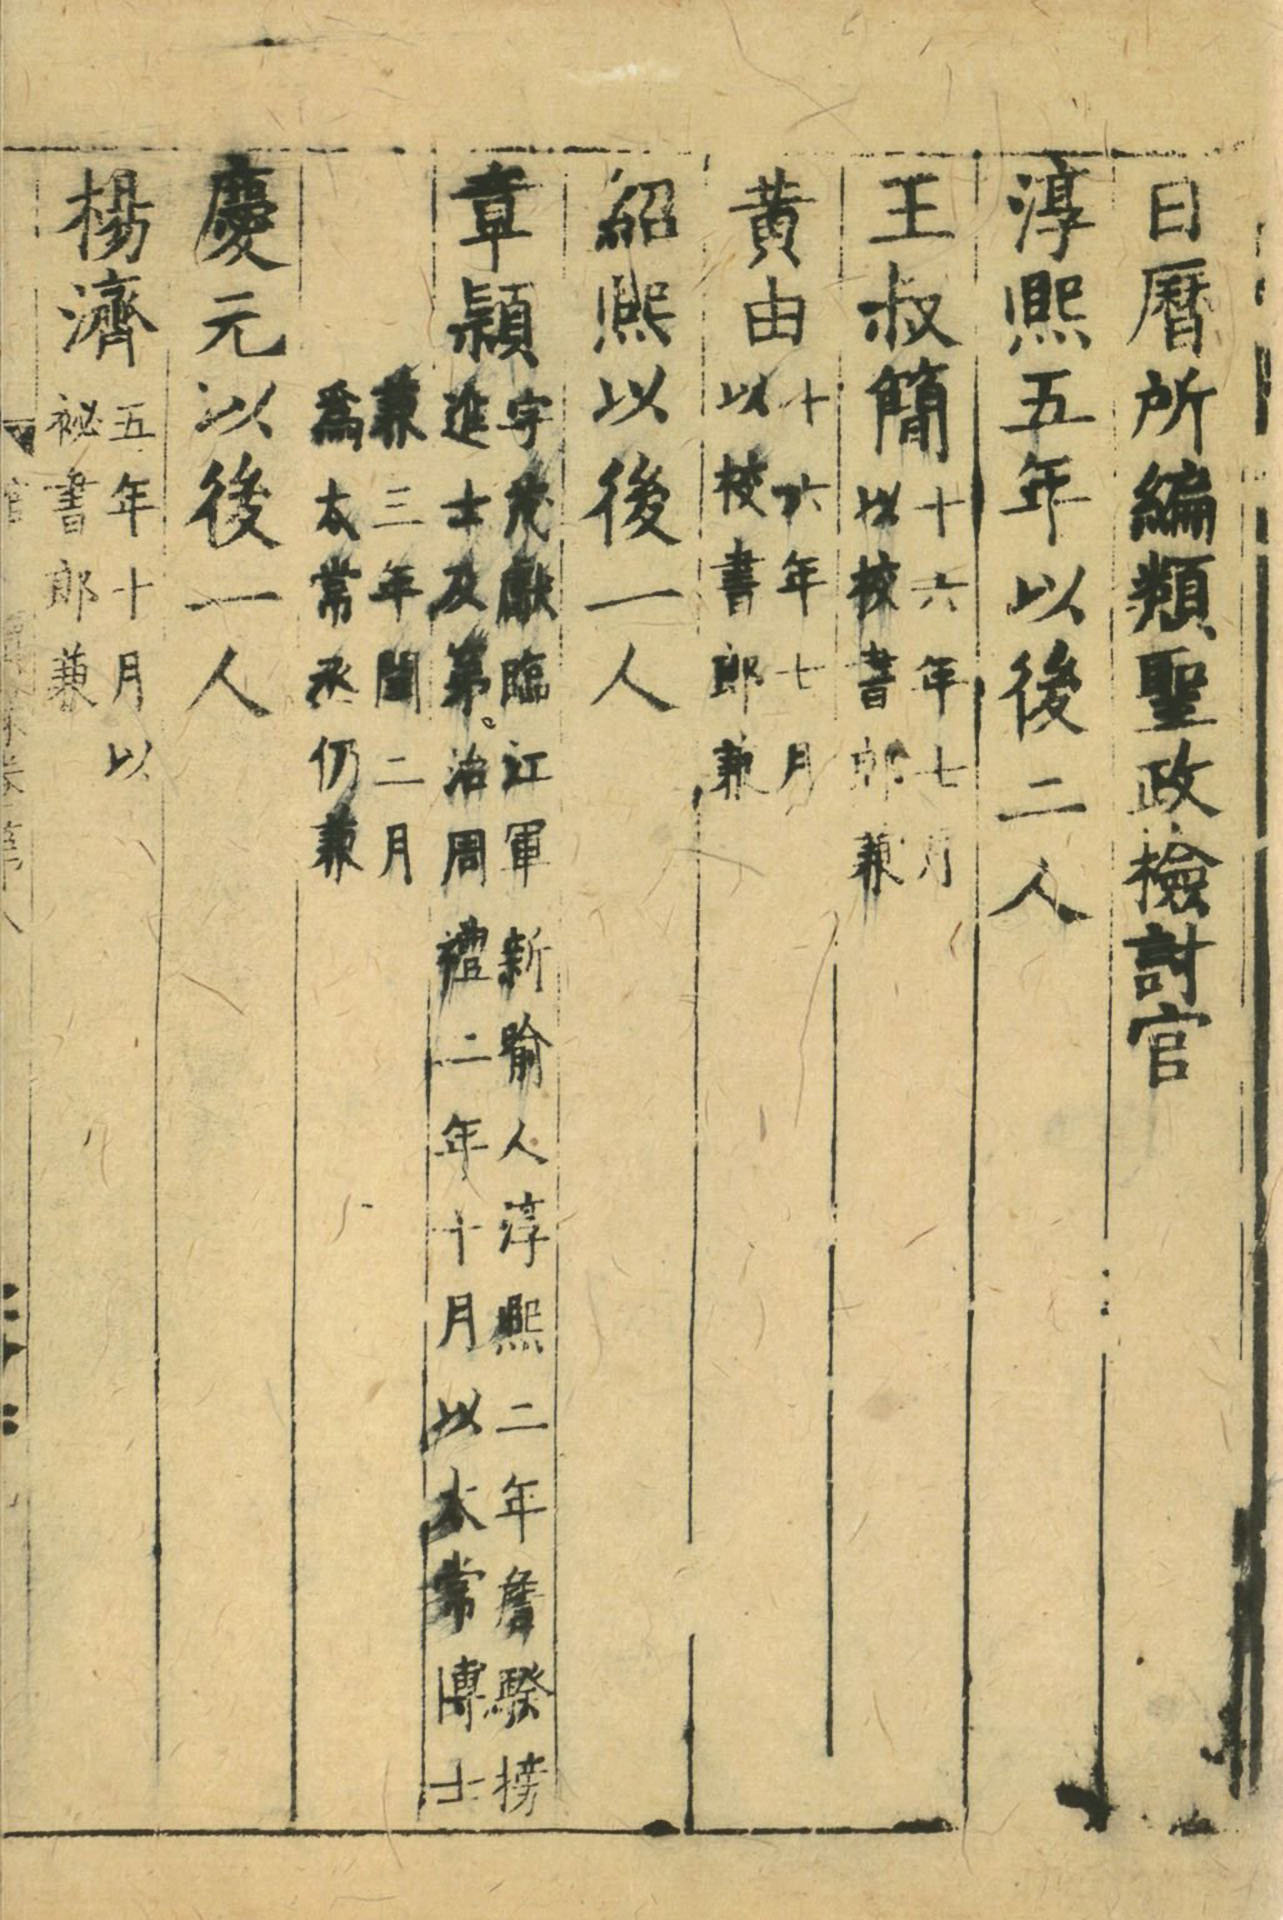 日曆所編類聖政檢討官
淳熙五年以後二人
王叔簡十六年七月
以校書郎兼
黃由十六年七月
以校書郎兼
紹熙以後一人
章穎字茂獻臨江軍新喻人淳熙二年詹騤榜
進士及第。治周禮二年十月以太常博士
兼三年閏二月
爲太常丞仍兼
慶元以後一人
楊濟五年十月以
祕書郎兼